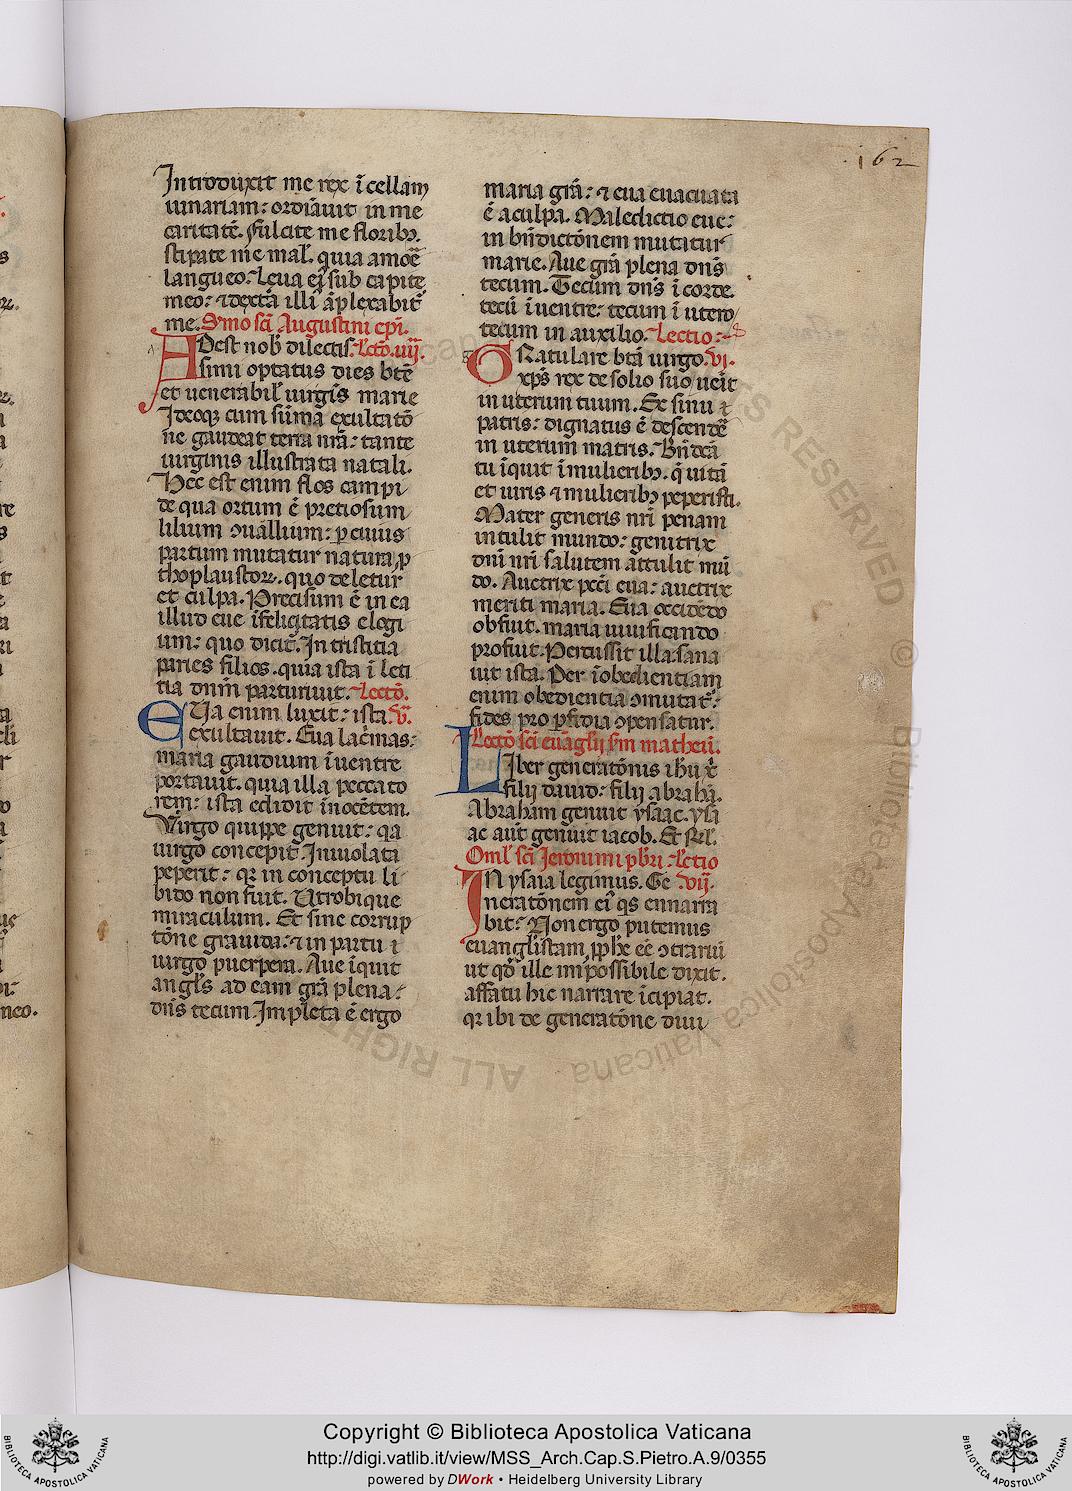 162
Introduxit me rex ī cellam
uinariam: ordīauit in me
caritatē. Fulcite me floribꝫ.
stipate me mal̄. quia amoē
langueo. Leua eı̄ sub capite
meo: ⁊ dextā illı̄ āplexabit̄
me. S̄mo sc̄i Augustini ep̄i.
ADest nob̄ dilectis. Lectō. iiij.
simi optatus dies btē
et uenerabil̄ uirgīs marie
Ideoqꝫ cum sūma exultatō
ne gaudeat terra nr̄a: tante
uirginis illustrata natali.
Hec est enim flos campi
de qua ortum ē pretiosum
lilium ↄuallium: ꝑ cuius
partum mutatur natura, ꝓ
thoplaustoꝝ. quo deletur
et culpa. Precisum ē in ea
illud eue īfelicitatis elogi
um: quo dicit̄. In tristitia
paries filios. quia ista ī leti
tia dnm̄ parturiuit. Lectō.
EUa enim luxit: ista. v̄.
exultauit. Eua lac̄mas:
maria gaudium ī uentre
portauit. quia illa peccato
rem: ista edidit īnocētem.
Virgo quippe genuit: qa
uirgo concepit. Inuiolata
peperit: qr̄ in conceptu li
bido non fuit. Utrobique
miraculum. Et sine corrup
tōne grauida: ⁊ in partu ı
uirgo puerpera. Aue īquit
angl̄s ad eam grā plena:
dn̄s tecum. Impleta ē ergo
maria grā: ⁊ eua euacuata
ē a culpa. Maledictio eue:
in bn̄dictōnem mutatur
marie. Aue grā plena dn̄s
tecum. Tecum dn̄s ī corde.
tecū ī uentre: tecum ī utero
tecum in auxilio. Lectio:
GRatulare btā uirgo. vi.
xp̄s rex de solio suo ueīt
in uterum tuum. Ex sinu
patris: dignatus ē descendē
in uterum matris. Bn̄dcā
tu īquit ī mulieribꝫ. q̄ uitā
et uiris ⁊ mulieribꝫ peperisti.
Mater generis nrī penam
intulit mundo: genitrix
dnī nrī salutem attulit mū
do. Auctrix pcc̄i eua: auctrix
meriti maria. Eua occidēdo
obfuit. maria uiuificando
profuit. Percussit illa. sana
uit ista. Per īobedientiam
enim obedientia ↄmutat̄:
fides pro ꝑfidia ↄpensatur.
Lectō sc̄i euāgl̄ij sm̄ matheū.
LIber generatōnis ihū xp̄ı
filij dauid: filij abrahā.
Abraham genuit ysaac. ysa
ac aut̄ genuit iacob. Et rel̄.
Omī sc̄i Ieronimi pb̄ri. Lectio
IN ysaia legimus. Ge vij.
neratōnem eı̄ q̄s ennarra
bit: Non ergo putemus
euangl̄istam, ꝓphe eē ↄtrariū
ut qd̄ ille impossibile dixit.
affatu hic narrare īcipiat.
qr̄ ibi de generatōne diui
Copyright © Biblioteca Apostolica Vaticana
http://digi.vatlib.it/view/MSS_Arch.Cap.S.Pietro.A.9/0355
powered by DWork • Heidelberg University Library